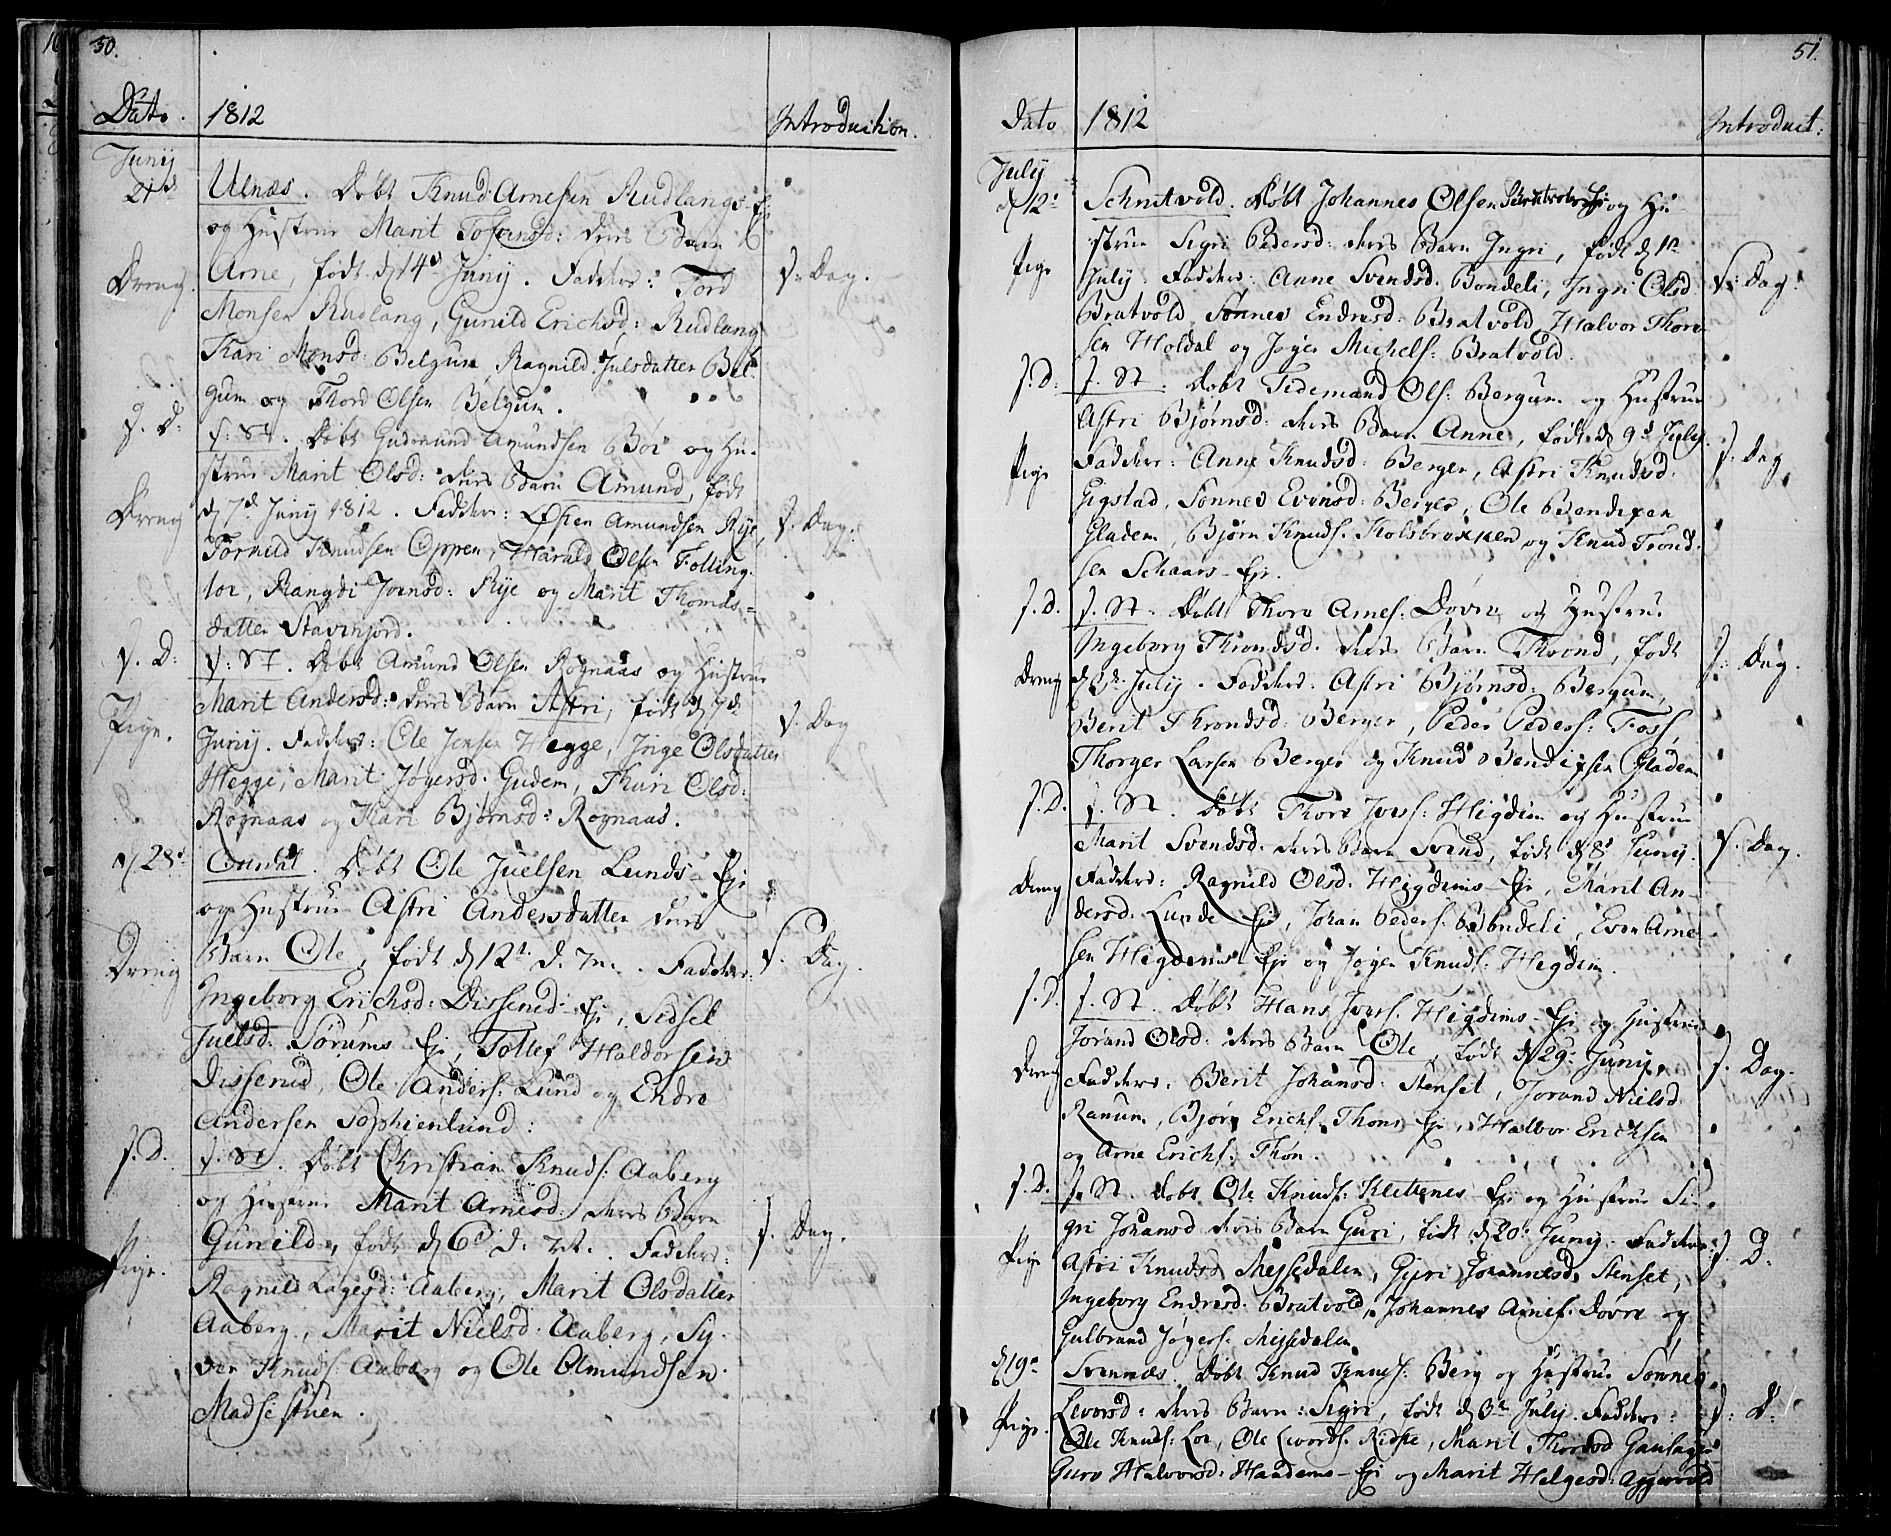 50.
Dato. 1812 Introduction.
Junij
21d Ulnæs. Døbt Knud Arnesen Rudlangs Eje
og Hustrue Marit Tostensd: deres Barn
Dreng. Arne, født d 14d Junij. Faddere: Tord s. Dag.
Monsen Rudlang, Gunild Erichsd: Rudlang
Kari Monsd: Belgum Ragnild Julsdatter Bel-
gum og Thord Olsen Belgum.
s. D: s. St. Døbt Gudmund Amundsen Böe og Hu-
strue Marit Olsd: deres Barn Amund, født
Dreng d 7d Junij 1812. Faddere: Østen Amundsen Rye, s. Dag.
Tornild Knudsen Oppen, Harald Olsen Folling-
loe, Rangdi Joensd: Rye og Marit Thomas-
datter Stavenjord.
s. D: s. St. Døbt Amund Olsen Rognaas og Hustrue
Marit Andersd: deres Barn Astri, født d 7d
Pige. Junij. Faddere: Ole Jensen Hegge, Inge Olsdatter s. Dag
Hegge, Marit Jøgersd. Gudem, Thuri Olsd:
Rognaas og Kari Bjørnsd: Rognaas.
d 28d Aurdal. Døbt Ole Juelsen Lunds Eje
og Hustrue Astri Andersdatter deres
Dreng Barn Ole, født d 12t d. M. Faddere: s. Dag.
Ingeborg Erichsd: Dissenud Eje, Sidsel
Juelsd. Sørums Eje, Tollef Haldorsen
Dissenud, Ole Anders: Lund og Endre
Andersen Sophienlund:
s. D. s. St. Døbt Christian Knuds: Aaberg
og Hustrue Marit Arnesd: deres Barn
Pige. Gunild, født d 6d d. M. Faddere: s. Dag.
Ragnild Lagesd: Aaberg, Marit Olsdatter
Aaberg, Marit Nielsd. Aaberg, Sy-
ver Knuds: Aaberg og Ole Olmundsen
Madsestuen.
51.
Dato 1812 Introduct:
July
d 12t Schnitvold. Døbt Johannes Olsen Eje og Hu-
strue Sigri Pedersd: deres Barn Ingri, født d 1te
Pige July. Faddere: Anne Svendsd. Bondeli, Ingri Olsd s. Dag.
Bratvold, Sønnev Endresd: Bratvold, Halvor Thore-
sen Holdal og Jøger Michels: Bratvold.
s. D: s. St. Døbt Tidemand Ols: Bergum og Hustrue
Astri Bjørnsd: deres Barn Anne, født d 9d July
Pige Faddere: Anne Knudsd: Berger, Astri Knudsd. s. Dag
Gigstad, Sønnev Evensd: Berger, Ole Bendixen
Gladem, Bjørn Knuds. Kolsbrokken og Knud Trond-
sen Schaars-Eje.
s. D. s. St. Døbt Thore Arnes: Dovre og Hustrue
Ingeborg Throndsd. deres Barn Thrond, født s. Dag.
Dreng d 5te July. Faddere: Astri Bjørnsd: Bergum,
Berit Throndsd: Berger, Peder Peders: Foss,
Thorger Larsen Berger og Knud Bendixsen Gladem
s. D. s. St. Døbt Thore Ivers: Higdem og Hustrue
Marit Svendsd. deres Barn Svend, født d 8d Junij. s. Dag.
Dreng Faddere: Ragnild Olsd: Higdems-Eje, Marit An-
dersd: Lunde Eje, Johan Peders: Bondeli, Even Arne-
sen Higdems Eje og Jøger Knuds: Higdem.
s. D. s. St. Døbt Hans Ivers. Higdems-Eje og Hustrue
Jørand Olsd: deres Barn Ole, født d 29. Junij,
Dreng Faddere: Berit Johansd: Stenset, Jorand Nielsd. s. Dag.
Ranum, Bjørn Erichs: Thons Eje, Halvor Erichsen
og Arne Erichs: Thon.
s. D. s. St. Døbt Ole Knuds: Klettenes Eje og Hustrue Si-
gri Johansd deres Barn Guri, født d 20. Junij. Faddere: s. D.
Pige Astri Knudsd. Mejsedalen, Gjøri Johannesd. Stenset,
Ingeborg Endresd. Bratvold, Johannes Arnes. Dovre og
Gulbrand Jøgers. Mejsedalen.
d 19de Svennæs. Døbt Knud Knuds: Berg og Hustrue Sønnev
Pige. Levorsd: deres Barn: Sigri, født d 3te July. Faddere: s. D.
Ole Knuds: Loe, Ole Levords. Ridste, Marit Thordsd Gausager
Guro Halvorsd: Haadems-Eje og Marit Helgesd: